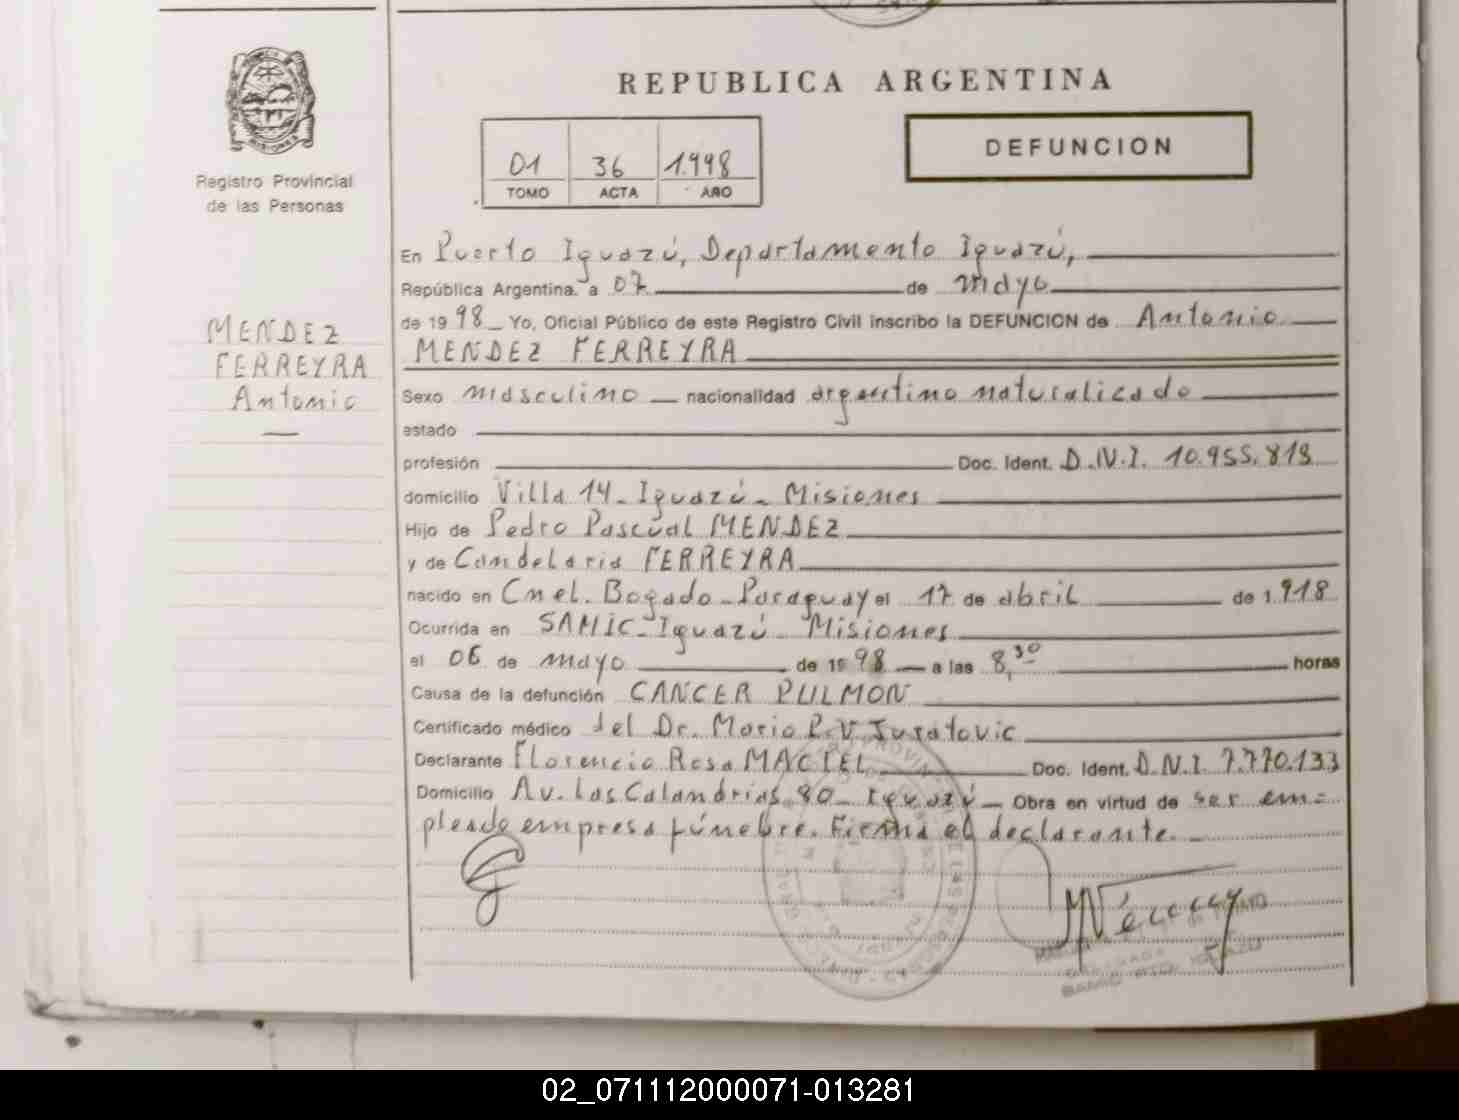 REPUBLICA ARGENTINA
DEFUNCION
01 36 1.998
TOMO ACTA AÑO
Registro Provincial
de las Personas
MENDEZ
FERREYRA
Antonio
En Puerto Iguazú, Departamento Iguazú,
República Argentina. a 07 de mayo
de 19 98 Yo, Oficial Público de este Registro Civil inscribo la DEFUNCION de Antonio
MENDEZ FERREYRA
Sexo masculino nacionalidad argentino naturalizado
estado
profesión Doc. Ident. D.N.I. 10.955.813
domicilio Villa 14 - Iguazú - Misiones
Hijo de Pedro Pascual MENDEZ
y de Candelaria FERREYRA
nacido en Cnel. Bogado - Paraguay el 17 de abril de 1.918
Ocurrida en SAMIC - Iguazú - Misiones
el 06 de mayo de 19 98 a las 8,30 horas
Causa de la defunción CANCER PULMON
Certificado médico del Dr. Mario R. V. Juratovic
Declarante Florencio Rosa MACIEL Doc. Ident. D.N.I. 7.770.133
Domicilio Av. Las Calandrias 80 - Iguazú - Obra en virtud de ser em=
pleado empresa fúnebre. Firma el declarante. -
02_071112000071-013281